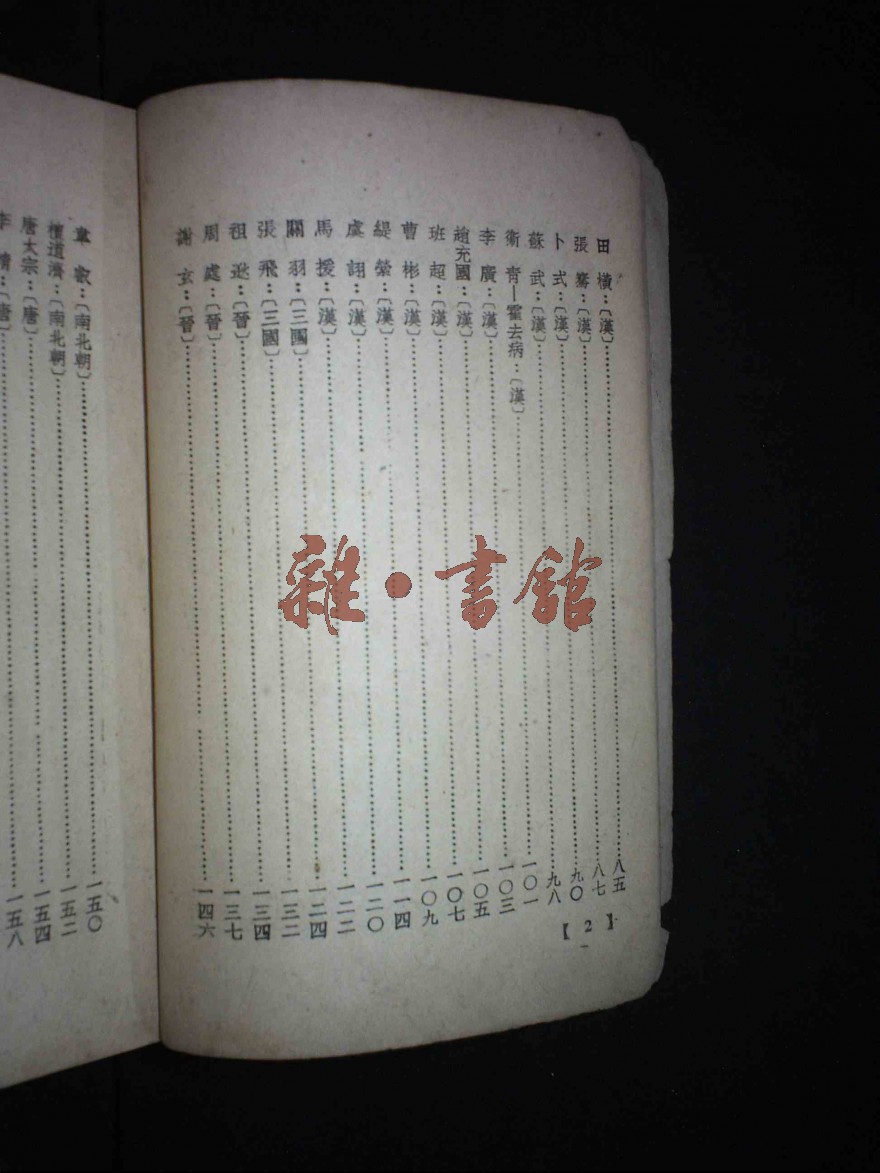 田橫：〔漢〕……八五
張騫：〔漢〕……八七
卜式：〔漢〕……九〇
蘇武：〔漢〕……九八
衞青—霍去病：〔漢〕……一〇一
李廣：〔漢〕……一〇三
趙充國：〔漢〕……一〇五
班超：〔漢〕……一〇七
曹彬：〔漢〕……一〇九
緹縈：〔漢〕……一一四
虞詡：〔漢〕……一二〇
馬援：〔漢〕……一二二
關羽：〔三國〕……一二四
張飛：〔三國〕……一三二
祖逖：〔晉〕……一三四
周處：〔晉〕……一三七
謝玄：〔晉〕……一四六
【2】
韋叡：〔南北朝〕……一五〇
檀道濟：〔南北朝〕……一五二
唐太宗：〔唐〕……一五四
李靖：〔唐〕……一五八
雜·書館